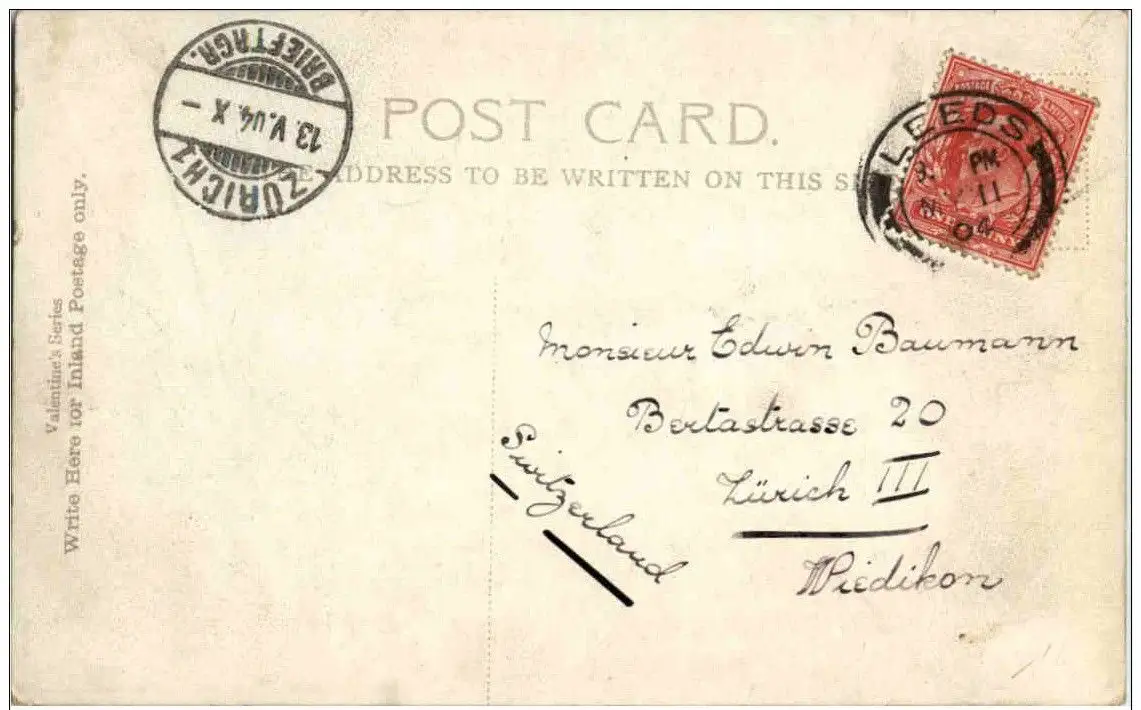 BRIEFTRGR.
13.V.04.X–
ZÜRICH 1
POST CARD.
ADDRESS TO BE WRITTEN ON THIS
LEEDS
PM
11
04
Valentine's Series
Write Here for Inland Postage only.
Monsieur Edwin Baumann
Bertastrasse 20
Zürich III
Wiedikon
Switzerland